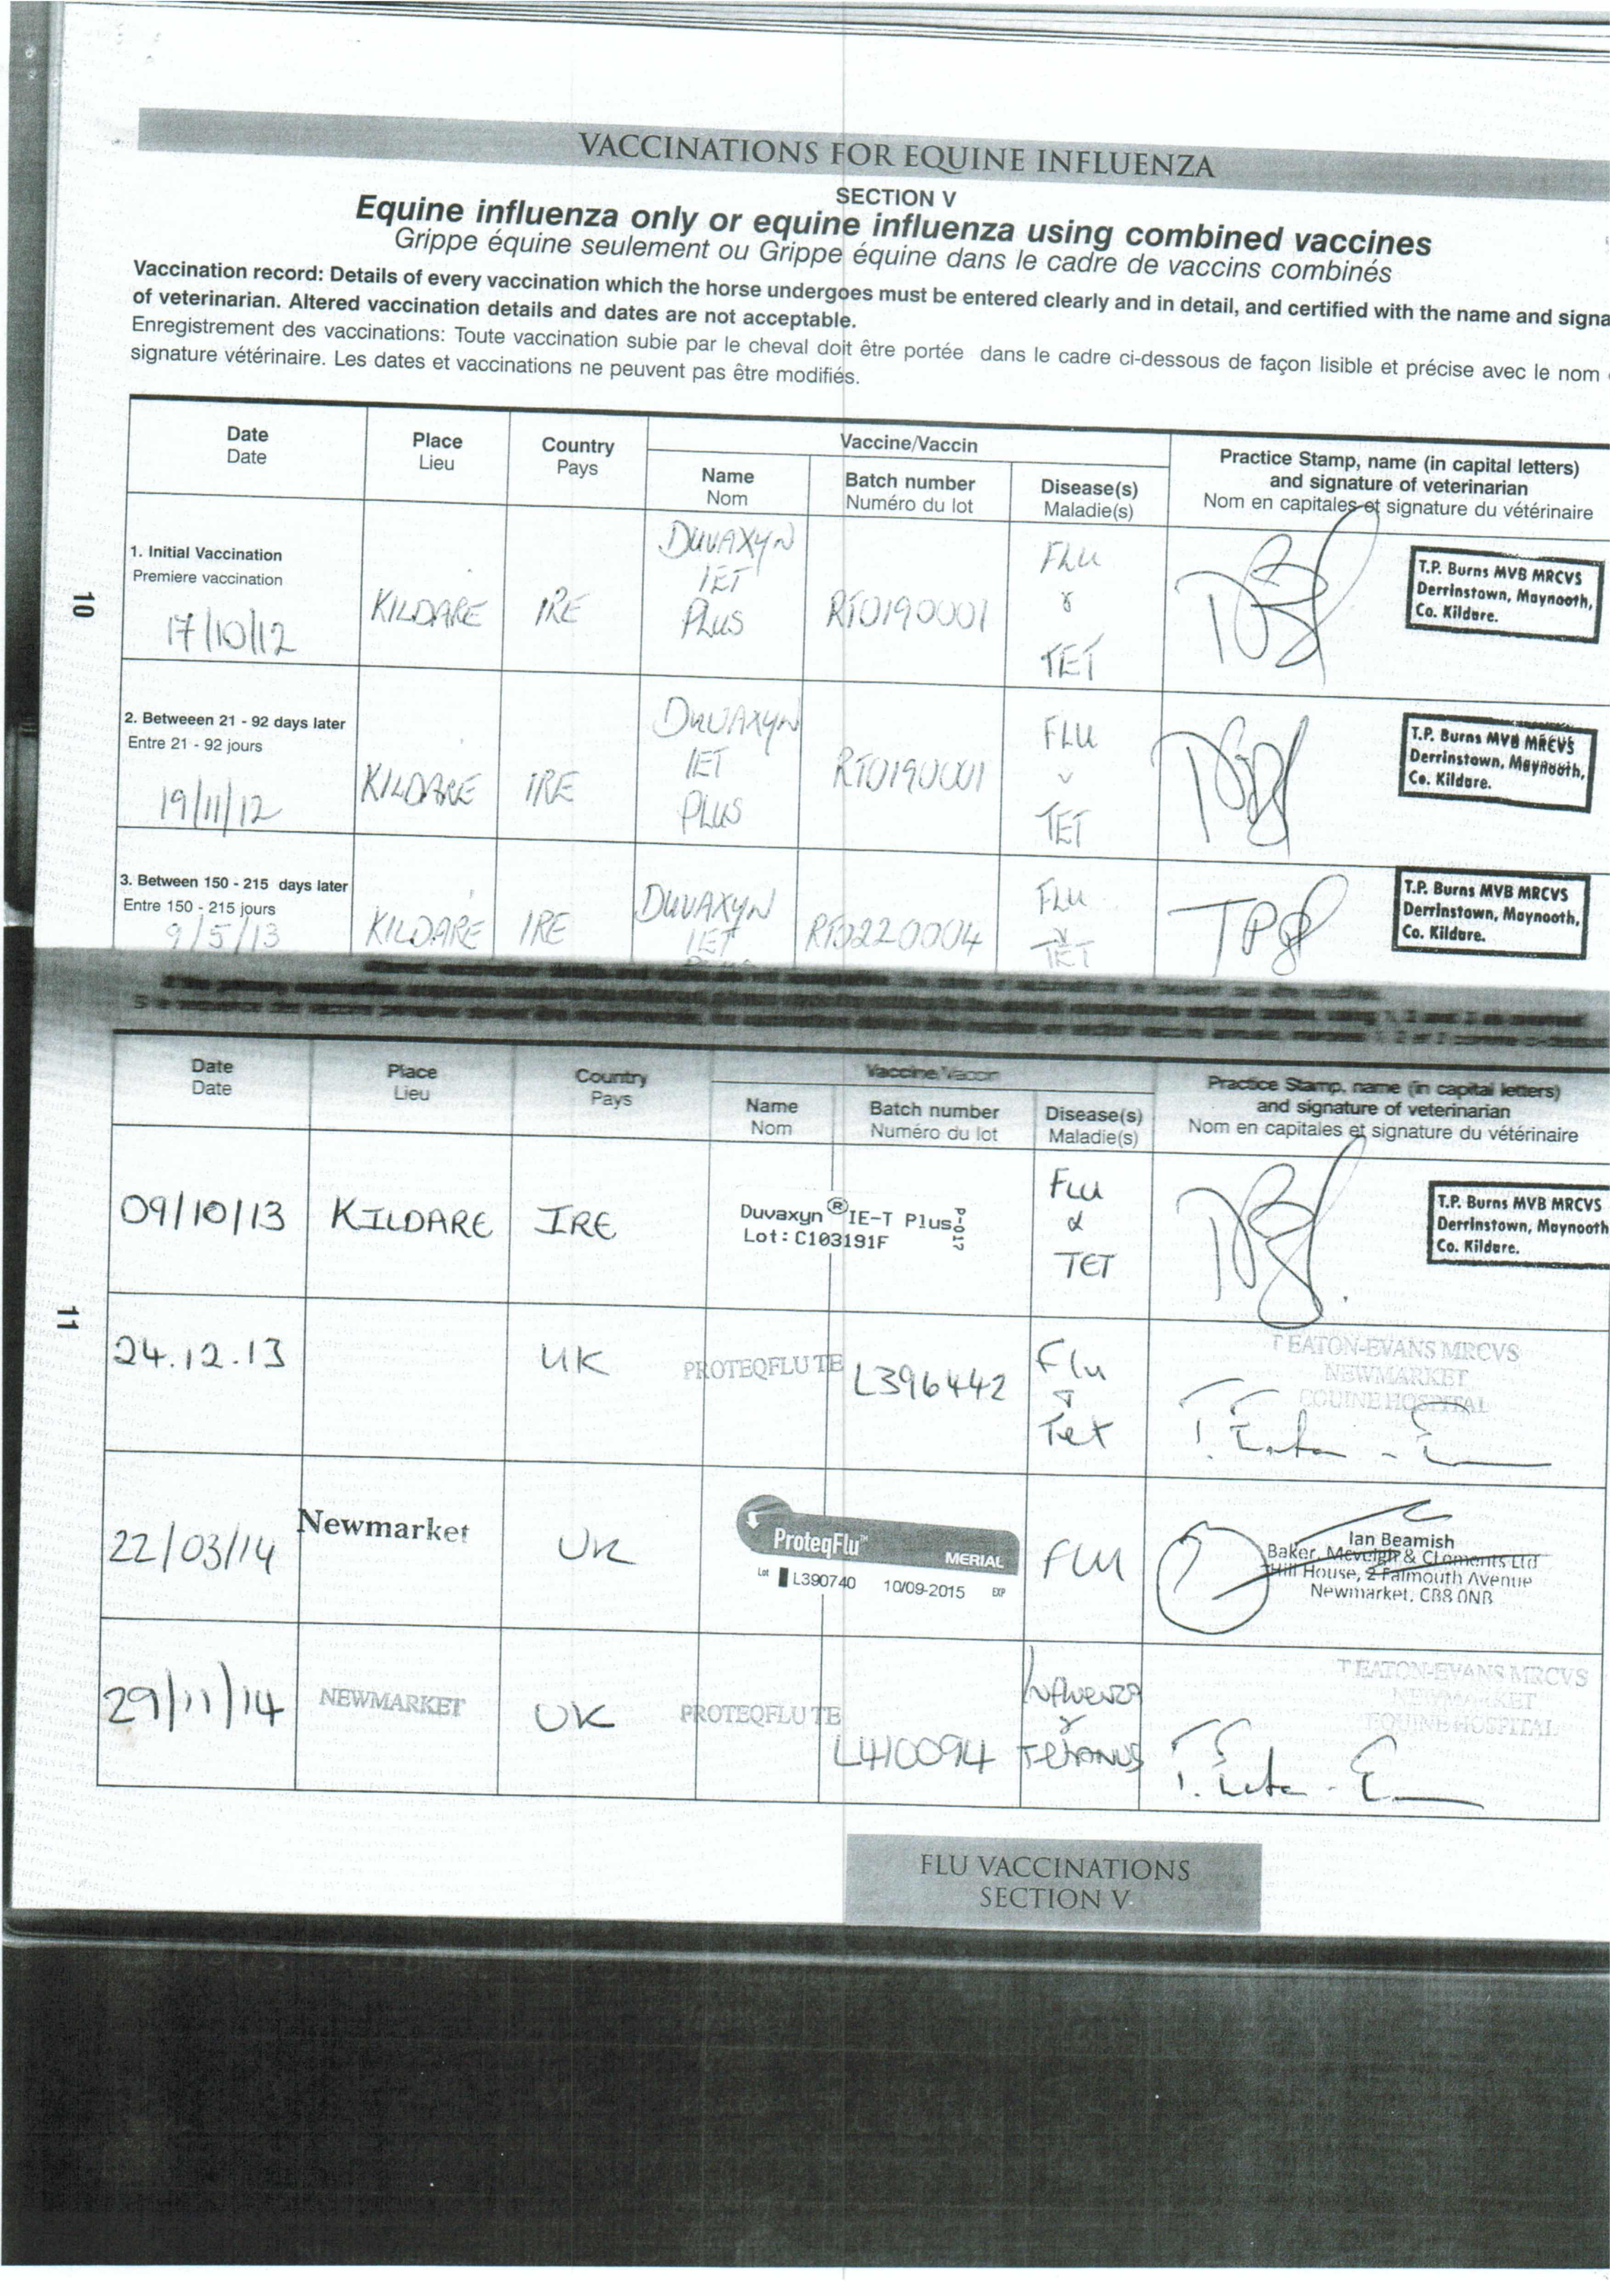 VACCINATIONS FOR EQUINE INFLUENZA
SECTION V
Equine influenza only or equine influenza using combined vaccines
Grippe équine seulement ou Grippe équine dans le cadre de vaccins combinés
Vaccination record: Details of every vaccination which the horse undergoes must be entered clearly and in detail, and certified with the name and signa
of veterinarian. Altered vaccination details and dates are not acceptable.
Enregistrement des vaccinations: Toute vaccination subie par le cheval doit être portée dans le cadre ci-dessous de façon lisible et précise avec le nom
signature vétérinaire. Les dates et vaccinations ne peuvent pas être modifiés.
Date
Date
Place
Lieu
Country
Pays
Vaccine/Vaccin
Name
Nom
Batch number
Numéro du lot
Disease(s)
Maladie(s)
Practice Stamp, name (in capital letters)
and signature of veterinarian
Nom en capitales et signature du vétérinaire
10
1. Initial Vaccination
Premiere vaccination
17/10/12
KILDARE
IRE
DUVAXYN
IET
PLUS
RT0190001
FLU
&
TET
T.P. Burns MVB MRCVS
Derrinstown, Maynooth,
Co. Kildare.
2. Betweeen 21 - 92 days later
Entre 21 - 92 jours
19/11/12
KILDARE
IRE
DUVAXYN
IET
PLUS
RT0190001
FLU
TET
T.P. Burns MVB MRCVS
Derrinstown, Maynooth,
Co. Kildare.
3. Between 150 - 215 days later
Entre 150 - 215 jours
9/5/13
KILDARE
IRE
DUVAXYN
IET
RT0220004
FLU
&
TET
TPB
T.P. Burns MVB MRCVS
Derrinstown, Maynooth,
Co. Kildare.
Date
Date
Place
Lieu
Country
Pays
Vaccine/Vaccin
Name
Nom
Batch number
Numéro du lot
Disease(s)
Maladie(s)
Practice Stamp, name (in capital letters)
and signature of veterinarian
Nom en capitales et signature du vétérinaire
11
09/10/13
KILDARE
IRE
Duvaxyn ® IE-T Plus
Lot: C103191F
P-017
FLU
&
TET
T.P. Burns MVB MRCVS
Derrinstown, Maynooth
Co. Kildare.
24.12.13
UK
PROTEQFLU TE
L396442
Flu
&
Tet
T EATON-EVANS MRCVS
NEWMARKET
EQUINE HOSPITAL
22/03/14
Newmarket
UK
ProteqFlu™
MERIAL
Lot L390740 10/09-2015 EXP
FLU
Ian Beamish
Baker, Mcveigh & Clements Ltd
Hill House, 2 Falmouth Avenue
Newmarket, CB8 0NB
29/11/14
NEWMARKET
UK
PROTEQFLU TE
L410094
Influenza
&
Tetanus
T EATON-EVANS MRCVS
NEWMARKET
EQUINE HOSPITAL
FLU VACCINATIONS
SECTION V